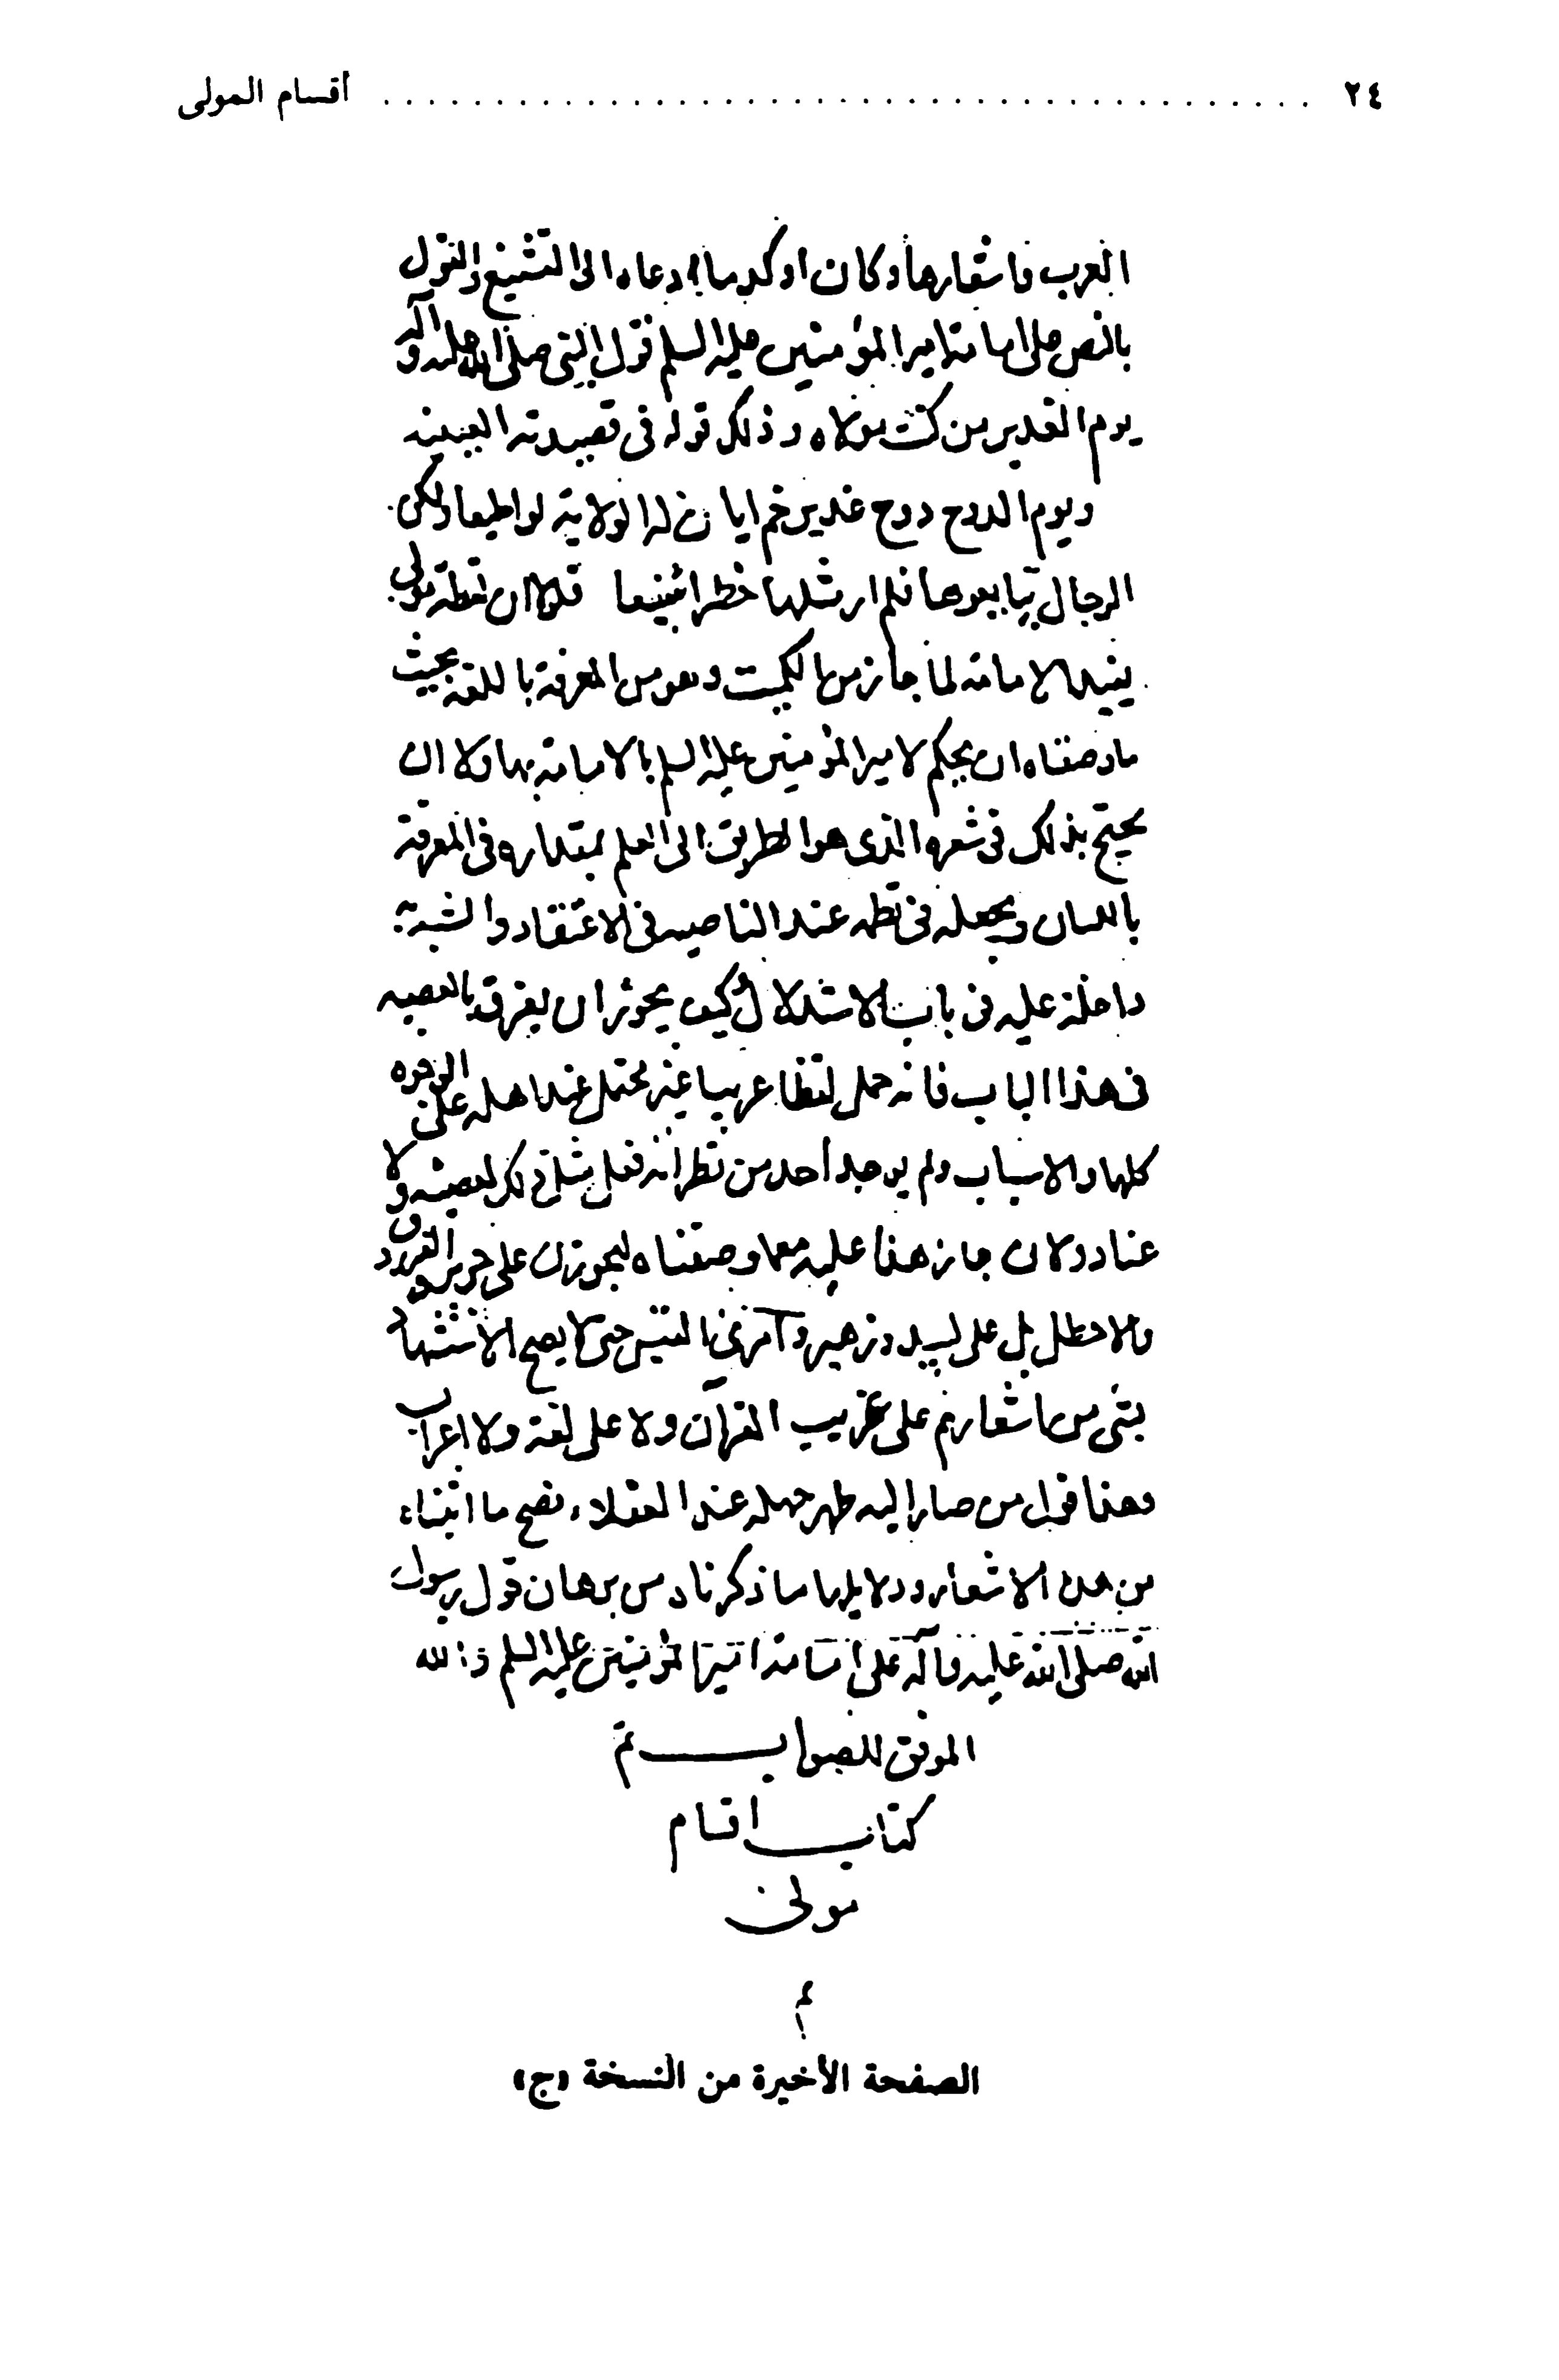 ٢٤ ........................................ أقسام المولى
العرب واشعارها وكان اوكد ما دعاه الى التشيع والقول
بالنص على امامة امير المؤمنين عليه السلم قول النبى صلى الله عليه وآله
يوم الغدير من كنت مولاه وذلك قوله فى قصيدته العينية
ويوم الدوح دوح غدير خم ابان له الولاية لو اطيعا ولكن
الرجال تبايعوها فلم ار مثلها خطرا منيعا فلولا ان لفظة مولى
يفيد الامامة لما جاز من الكميت وهو من المعرفة باللغة بحيث
ما وصفناه ان يحكم لامير المؤمنين عليه السلم بالامامة بها ولا ان
يحتج بذلك فى شعره الذى هو الطريق الى العلم بمقداره فى المعرفة
باللسان ويجعله فى نظمه عند الناصبه فى الاعتقاد والشبهة
داخلة عليه فى باب الاستدلال وكيف يجوز ان يغرق بالعصبيه
فى هذا الباب فانه حمل لفظا عربيا غير محتمل عند اهله على الوجوه
كلها والاسباب ولم يوجد احد من نظرائه فعل مثل ذلك لعصبية ولا
عناد ولان جاز هذا عليه مع ما وصفناه ليجوزن على جرير والفرزدق
والاخطل بل على لبيد وزهير وامرئ القيس حتى لا يصح الاستشهاد
بشىء من اشعارهم على غريب القرآن ولا على لغة ولا اعراب
وهذا قول من صار اليه ظهر جهله عند العقلاء فصح ما اثبتناه
من هذه الاشعار ودلايلها ما ذكرناه من برهان قول رسول
الله صلى الله عليه وآله على امامة امير المؤمنين عليه السلم والله
الموفق للصواب تم
كتاب اقسام
مولى
م
الصفحة الأخيرة من النسخة «ج»